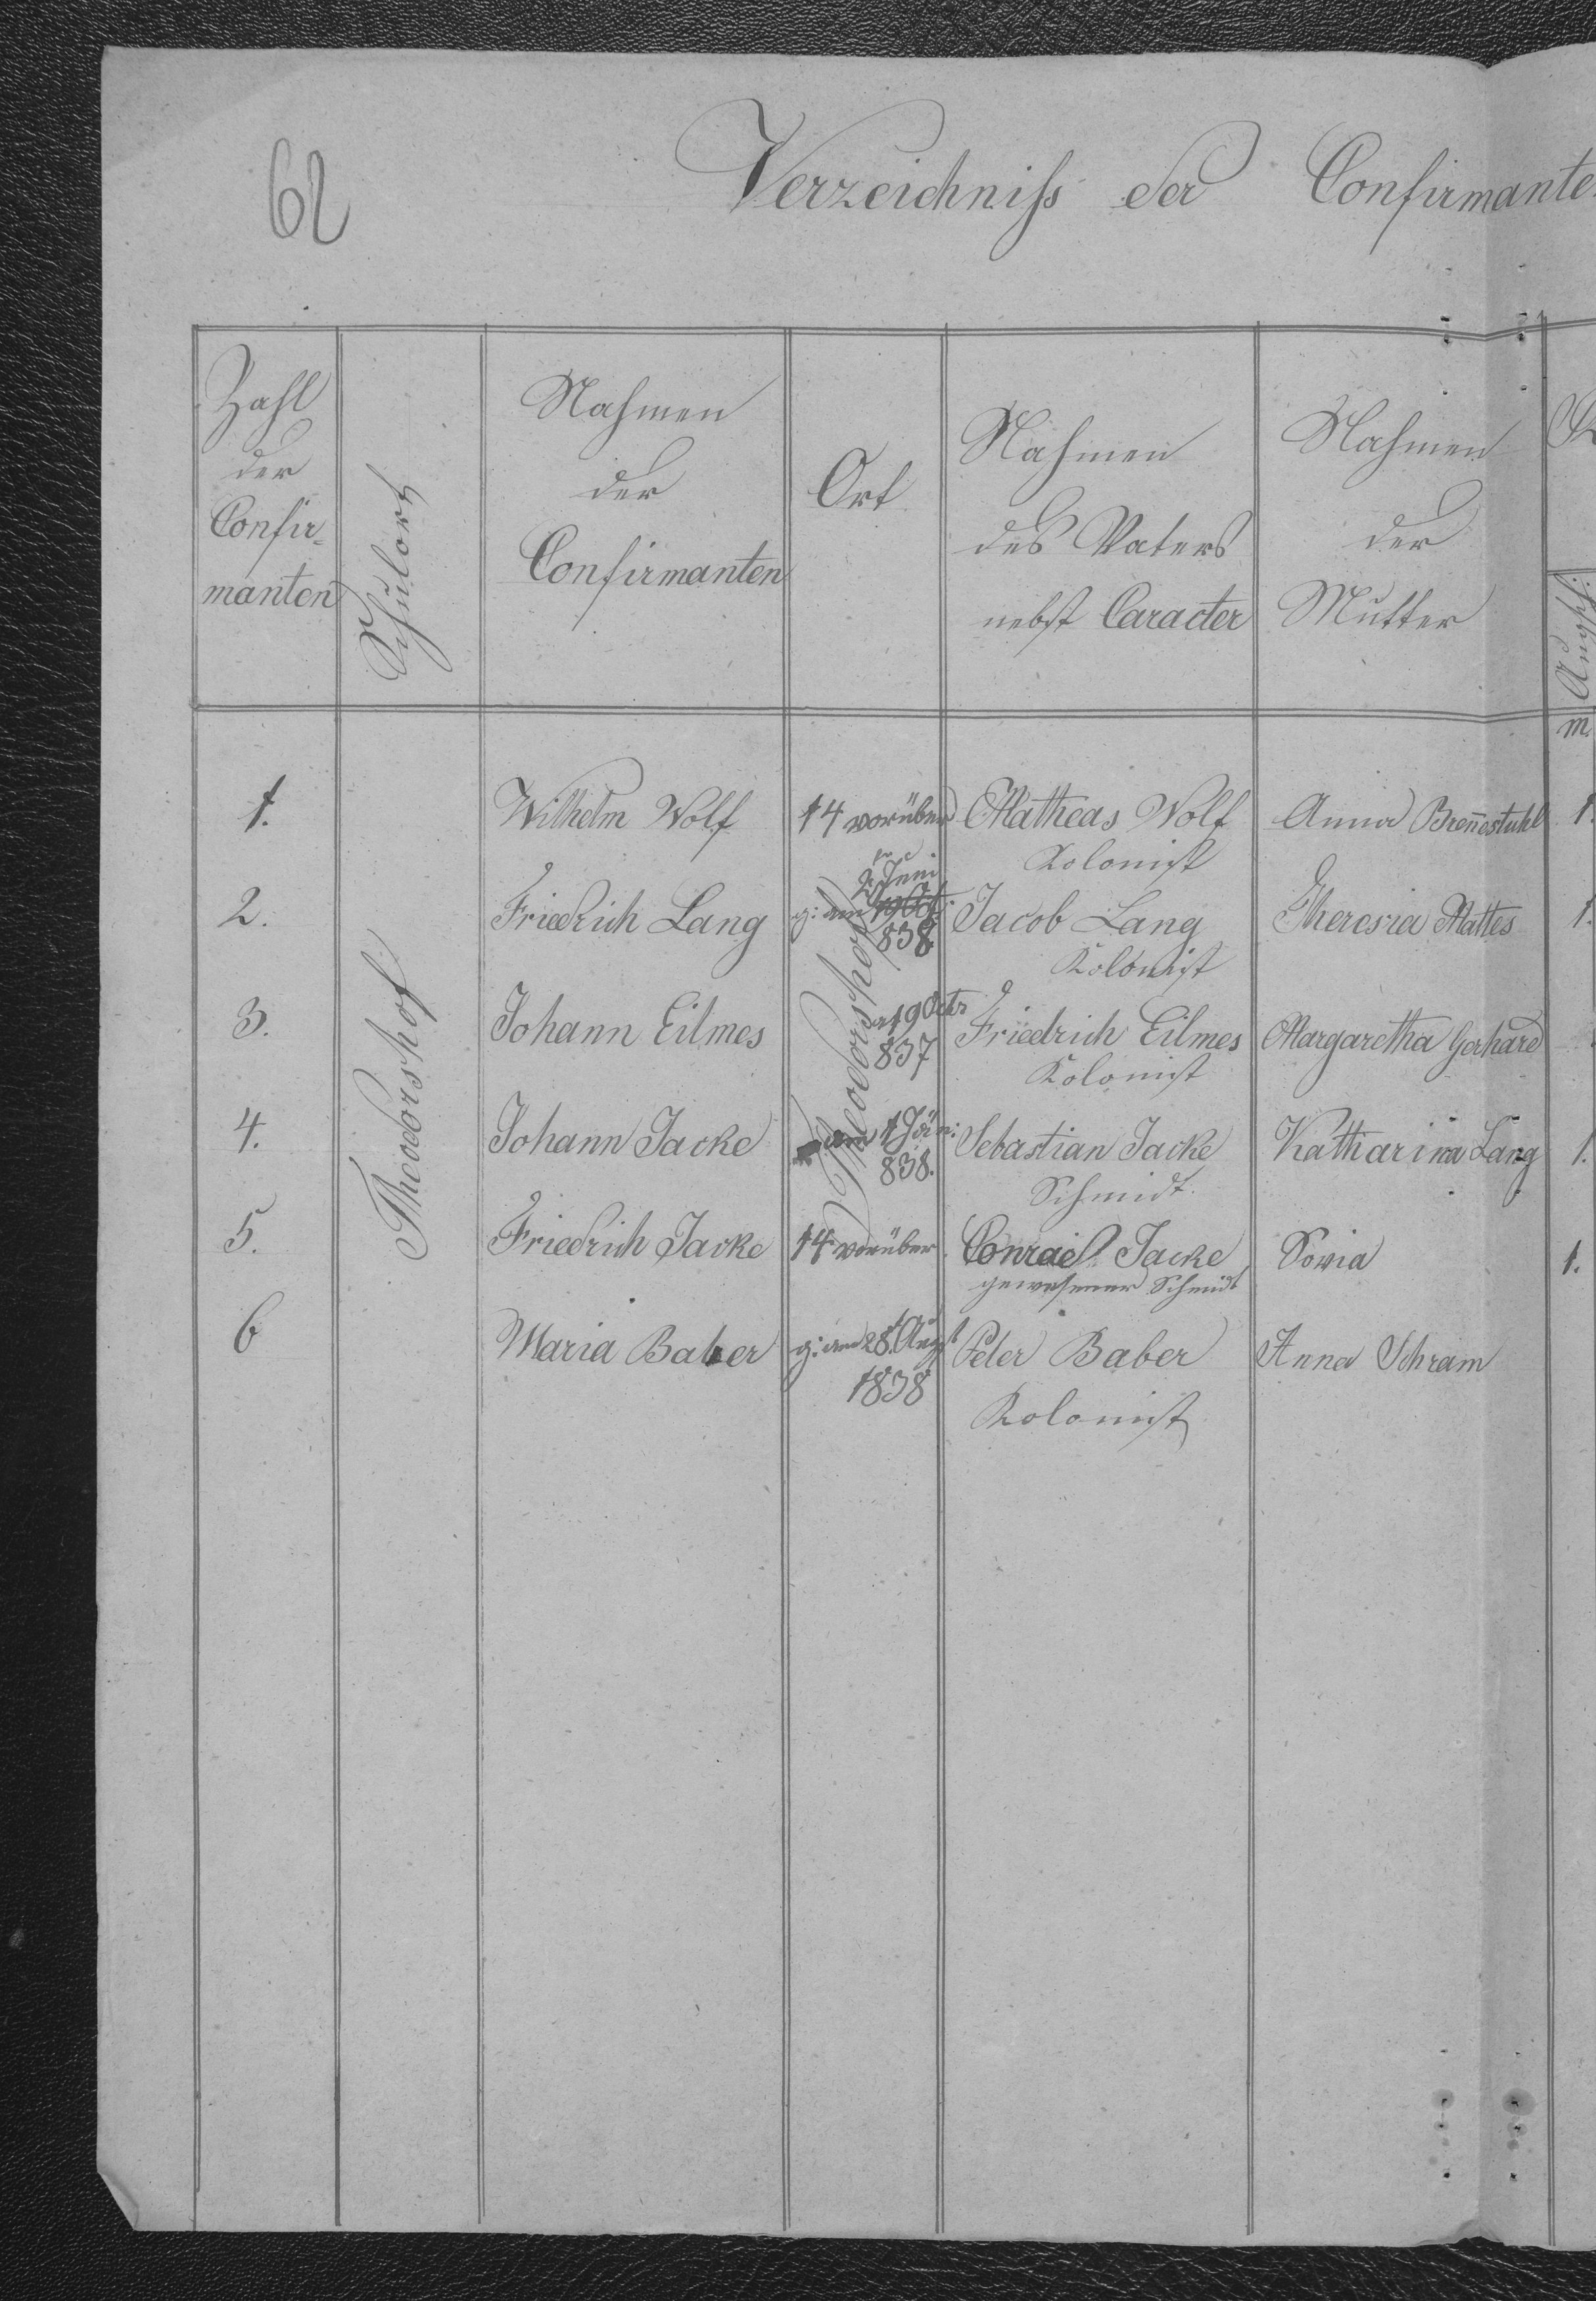 62
Verzeichniss der Confirmante
Zahl
der
Confir-
manten
Schulort
Nahmen
der
Confirmanten
Ort
Nahmen
des Vaters
nebst Caracter
Nahmen
der
Mutter
m.
Theodorshof
Theodorshof
1. Wilhelm Wolf 14 vorüber Matheas Wolf Anna Breñestuhl 1.
Kolonist
2 Juni
2. Friedrich Lang g: am 19 Oct. Jacob Lang Theresia Mattes 1.
838 Kolonist
3. Johann Eilmes 19 Octr Friedrich Eilmes Margaretha Gerhard
837 Kolonist
4. Johann Jacke am 1 Jän: Sebastian Jacke Katharina Lang 1.
838. Schmidt
5. Friedrich Jacke 14 vorüber Conrad Jacke Sovia 1.
gewesener Schmidt
6 Maria Baber g: am 28. Augst Peter Baber Anna Schram
1838 Kolonist